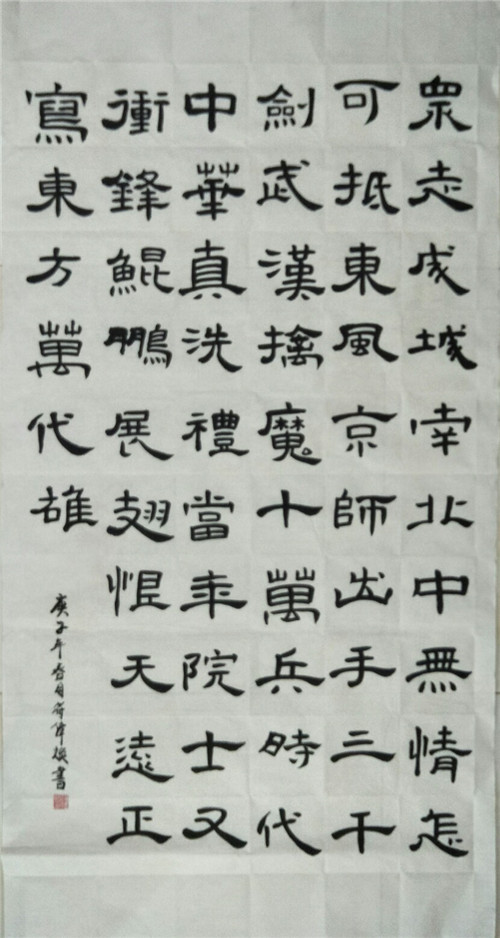 眾志成城南北中無情怎
可抵東風京師出手三千
劍武漢擒魔十萬兵時代
中華真洗禮當年院士又
衝鋒鯤鵬展翅恨天遠正
寫東方萬代雄
庚子年春月偉撰書